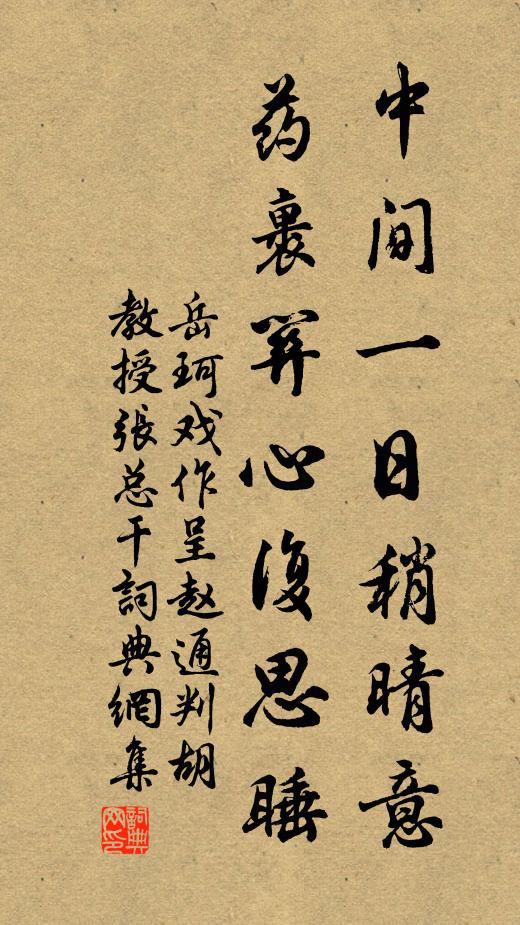 中间一日稍晴意
药裹关心復思睡
岳珂戏作呈赵通判胡
教授張总干詞典網集
詞典网印